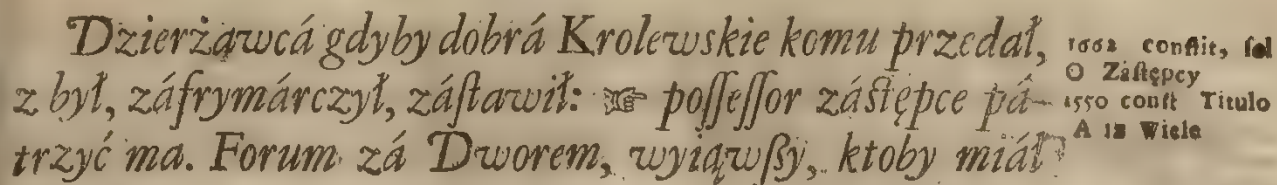 Dzierżąwcá gdyby dobrá Krolewskie komu przedał,
z był, záfrymárczył, záſtawił: ☞ poſſeſſor záſtępce pá-
trzyć ma. Forum zá Dworem, wyiąwſzy, ktoby miáł
1662 conſtit, fol
O Záſtępcy
1550 conſt Titulo
A iż Wiele